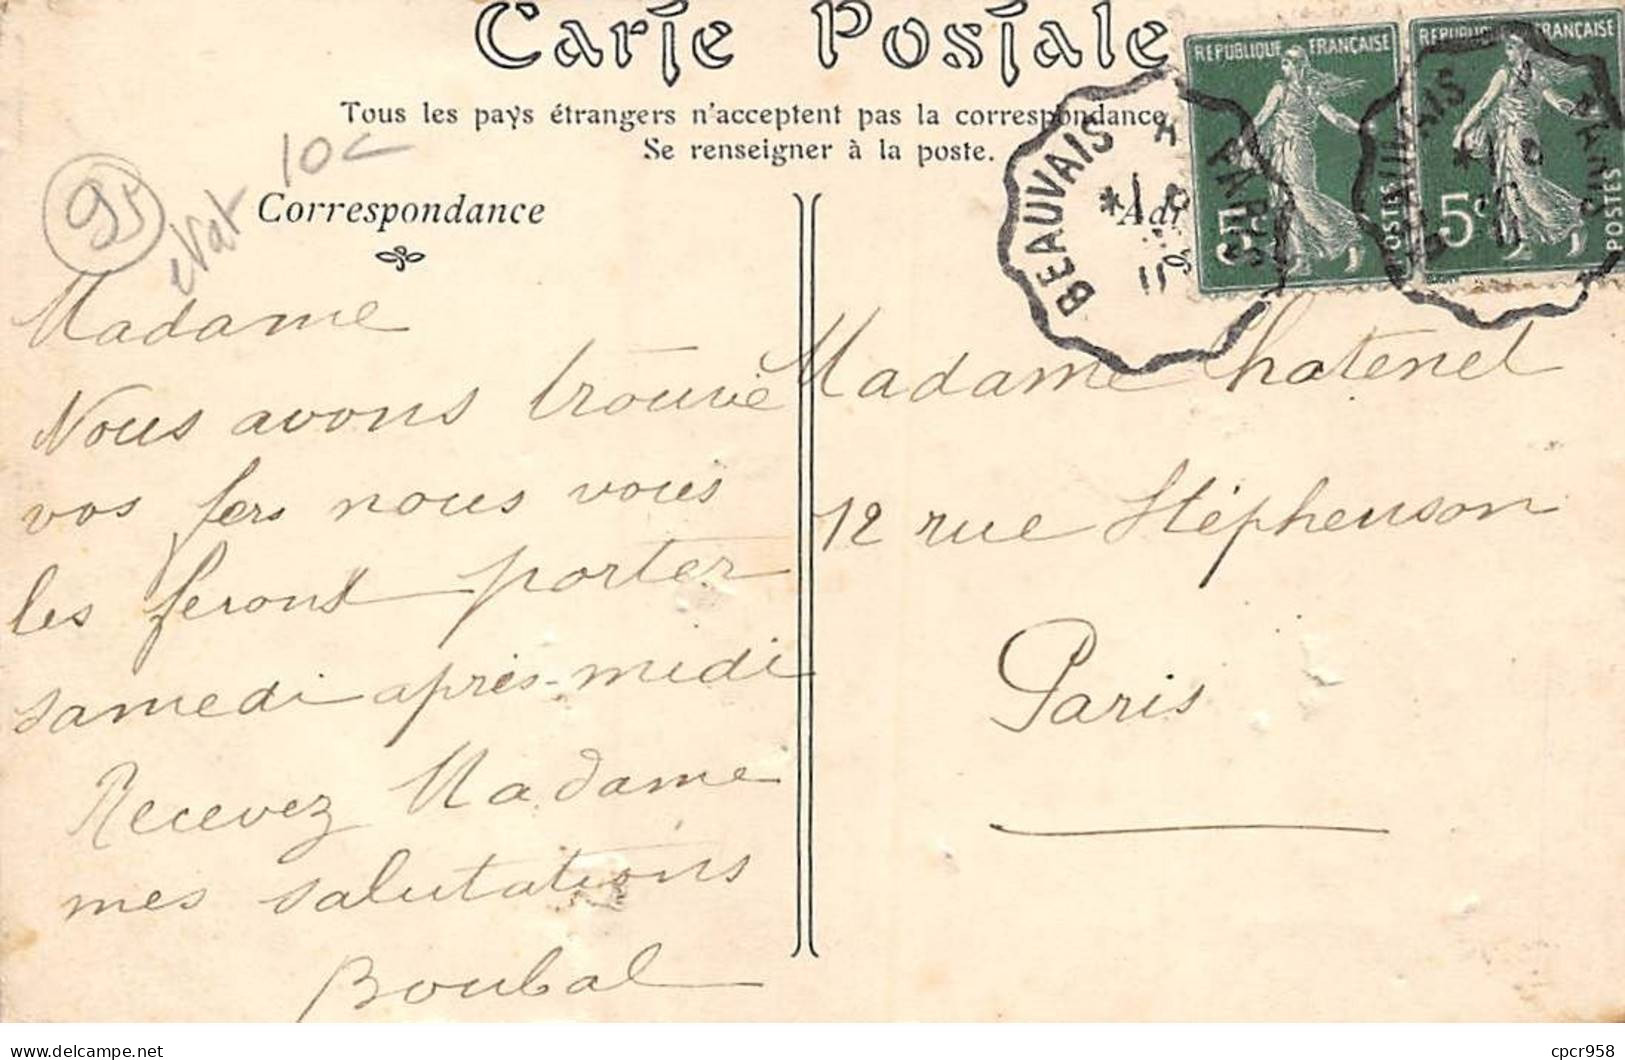 Carte Postale
Tous les pays étrangers n'acceptent pas la correspondance
Se renseigner à la poste.
95
10c
Correspondance
REPUBLIQUE FRANÇAISE
5c
POSTES
REPUBLIQUE FRANÇAISE
5c
POSTES
BEAUVAIS A PARIS
11
BEAUVAIS A PARIS
11
Madame
Nous avons trouvé
vos fers nous vous
les feront porter
samedi après-midi
Recevez Madame
mes salutations
Boubal
Madame Chatenet
12 rue Stéphenson
Paris
delcampe.net
cpcr958